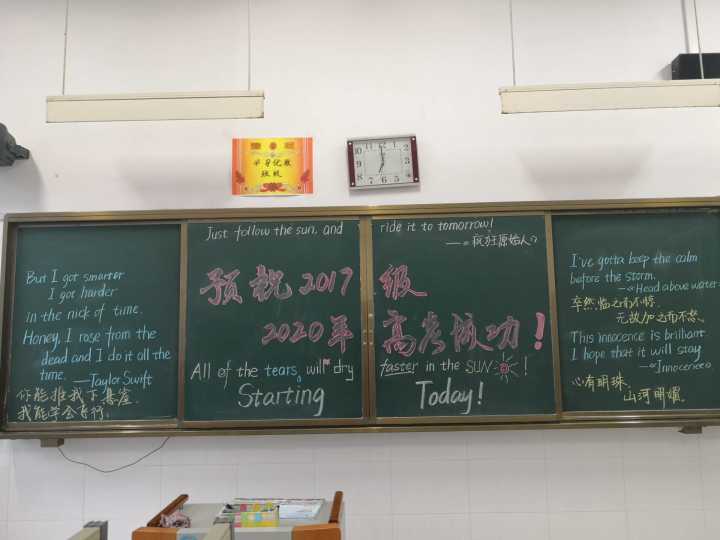 毕导优散
班级
But I got smarter
I got harder
in the nick of time.
Honey, I rose from the
dead and I do it all the
time. —Taylor Swift
你能推我下悬崖
我能学会飞行.
Just follow the sun, and ride it to tomorrow!
——《疯狂原始人》
预祝2017级
2020年高考成功!
All of the tears will dry faster in the SUN!
Starting Today!
I've gotta keep the calm
before the storm.
—《Head above water》
卒然临之而不惊.
无故加之而不怒.
This innocence is brilliant.
I hope that it will stay
—《Innocence》
心有明珠.
山河明媚.